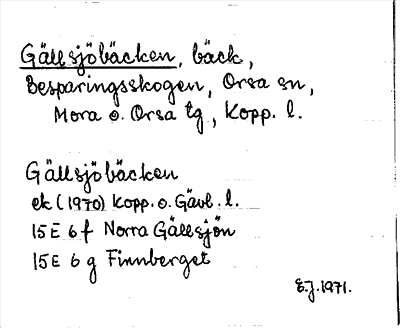 Gällsjöbäcken, bäck,
Besparingsskogen, Orsa sn,
Mora o. Orsa tg, Kopp. l.
Gällsjöbäcken
ek (1970) Kopp. o. Gävl. l.
15 E 6 f Norra Gällsjön
15 E 6 g Finnberget
E.J. 1971.